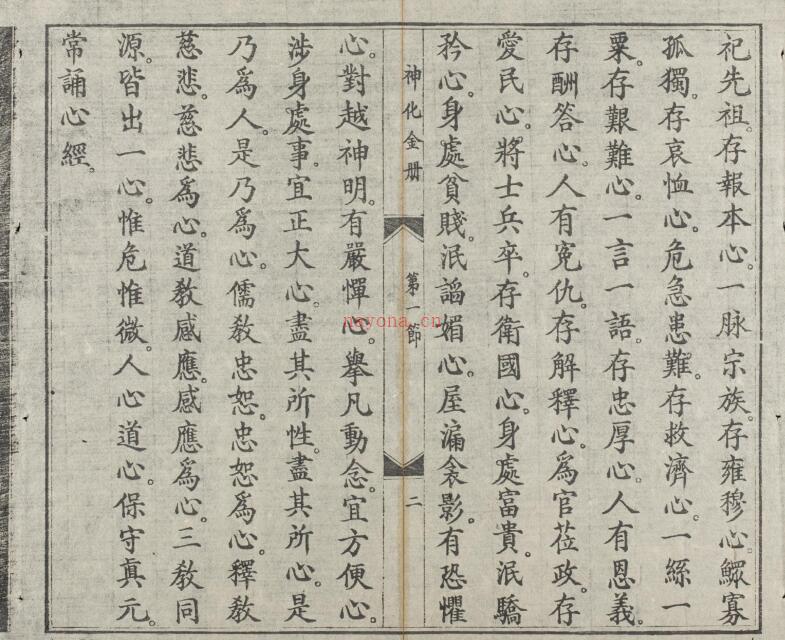 祀先祖。存報本心。一脉宗族。存雍穆心。鰥寡
孤獨。存哀恤心。危急患難。存救濟心。一絲一
粟。存艱難心。一言一語。存忠厚心。人有恩義。
存酬答心。人有寃仇。存解釋心。爲官莅政。存
愛民心。將士兵卒。存衛國心。身處富貴。泯驕
矜心。身處貧賤。泯謟媚心。屋漏衾影。有恐懼
神化金册 第一節 二
心。對越神明。有嚴憚心。舉凡動念。宜方便心。
涉身處事。宜正大心。盡其所性。盡其所心。是
乃爲人。是乃爲心。儒教忠恕。忠恕爲心。釋教
慈悲。慈悲爲心。道教感應。感應爲心。三教同
源。皆出一心。惟危惟微。人心道心。保守眞元。
常誦心經。
nayona.cn